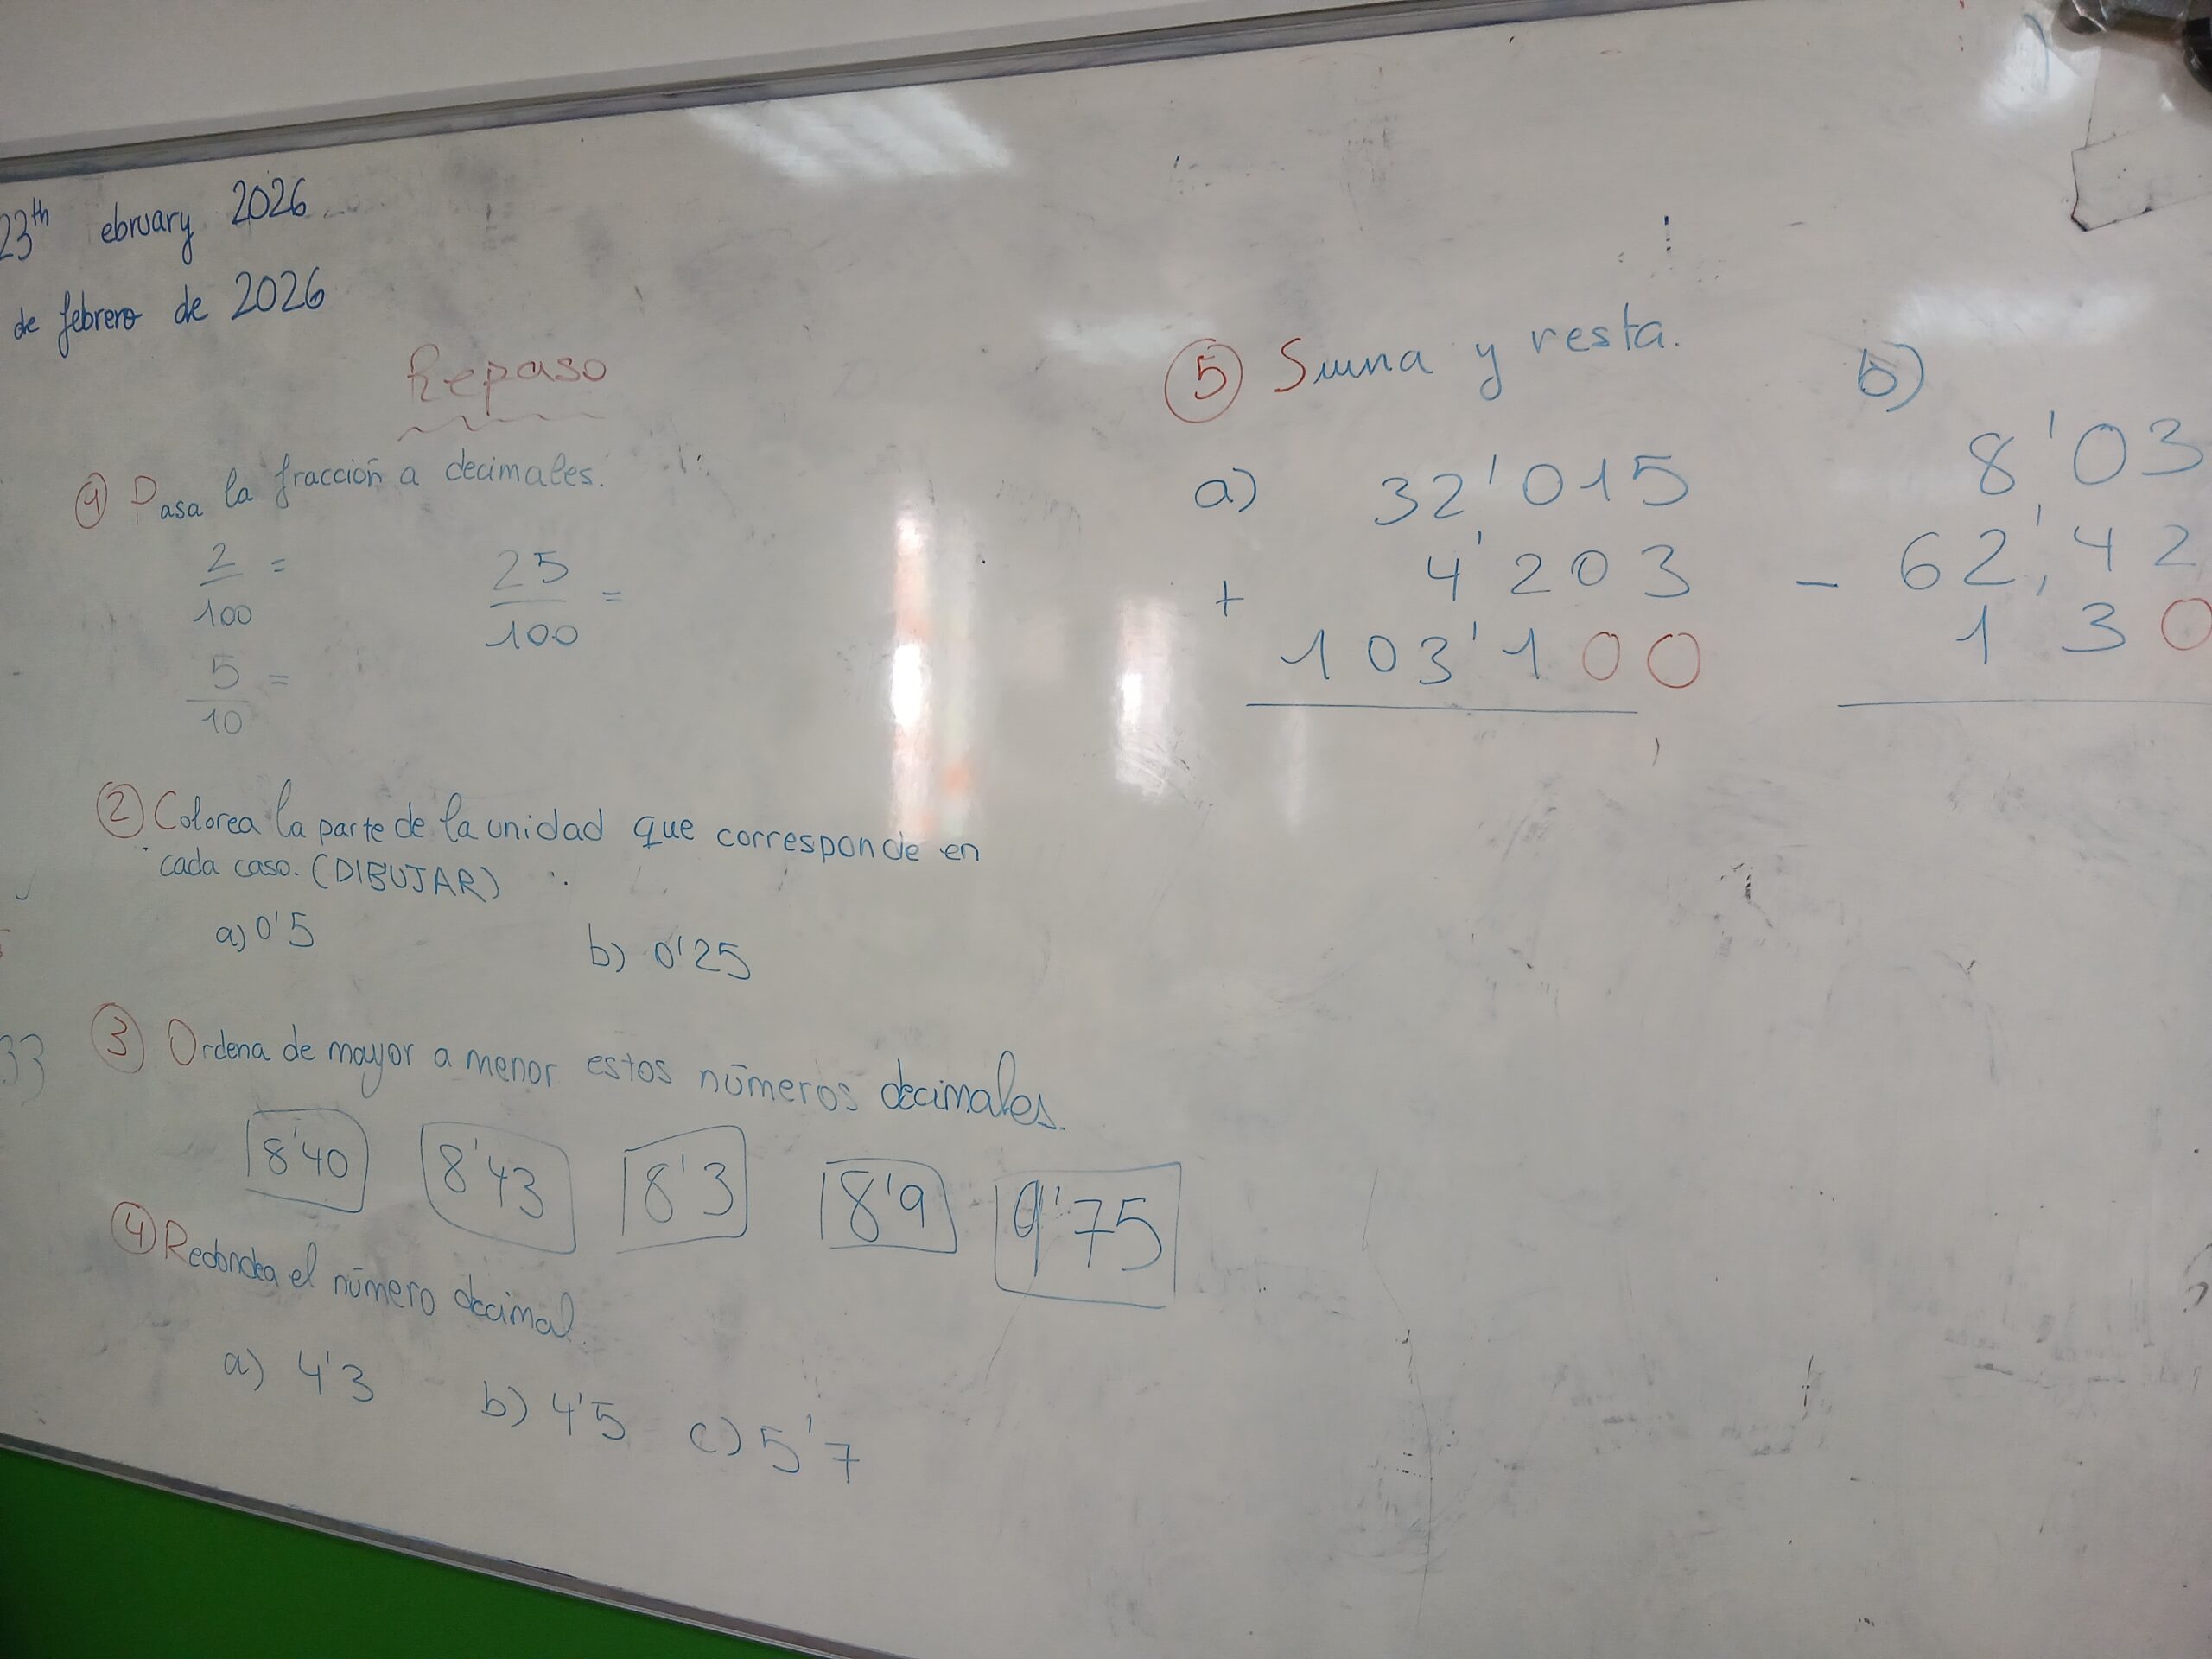 23th ebruary 2026
de febrero de 2026
Repaso
1 Pasa la fracción a decimales.
2/100 =
25/100 =
5/10 =
2 Colorea la parte de la unidad que corresponde en
cada caso. (DIBUJAR)
a) 0'5 b) 0'25
3 Ordena de mayor a menor estos números decimales.
8'40 8'43 8'3 8'9 9'75
4 Redondea el número decimal.
a) 4'3 b) 4'5 c) 5'7
5 Suma y resta.
a) 32'015
4'203
+
103'100
b)
8'03
- 62'42
1'30
33